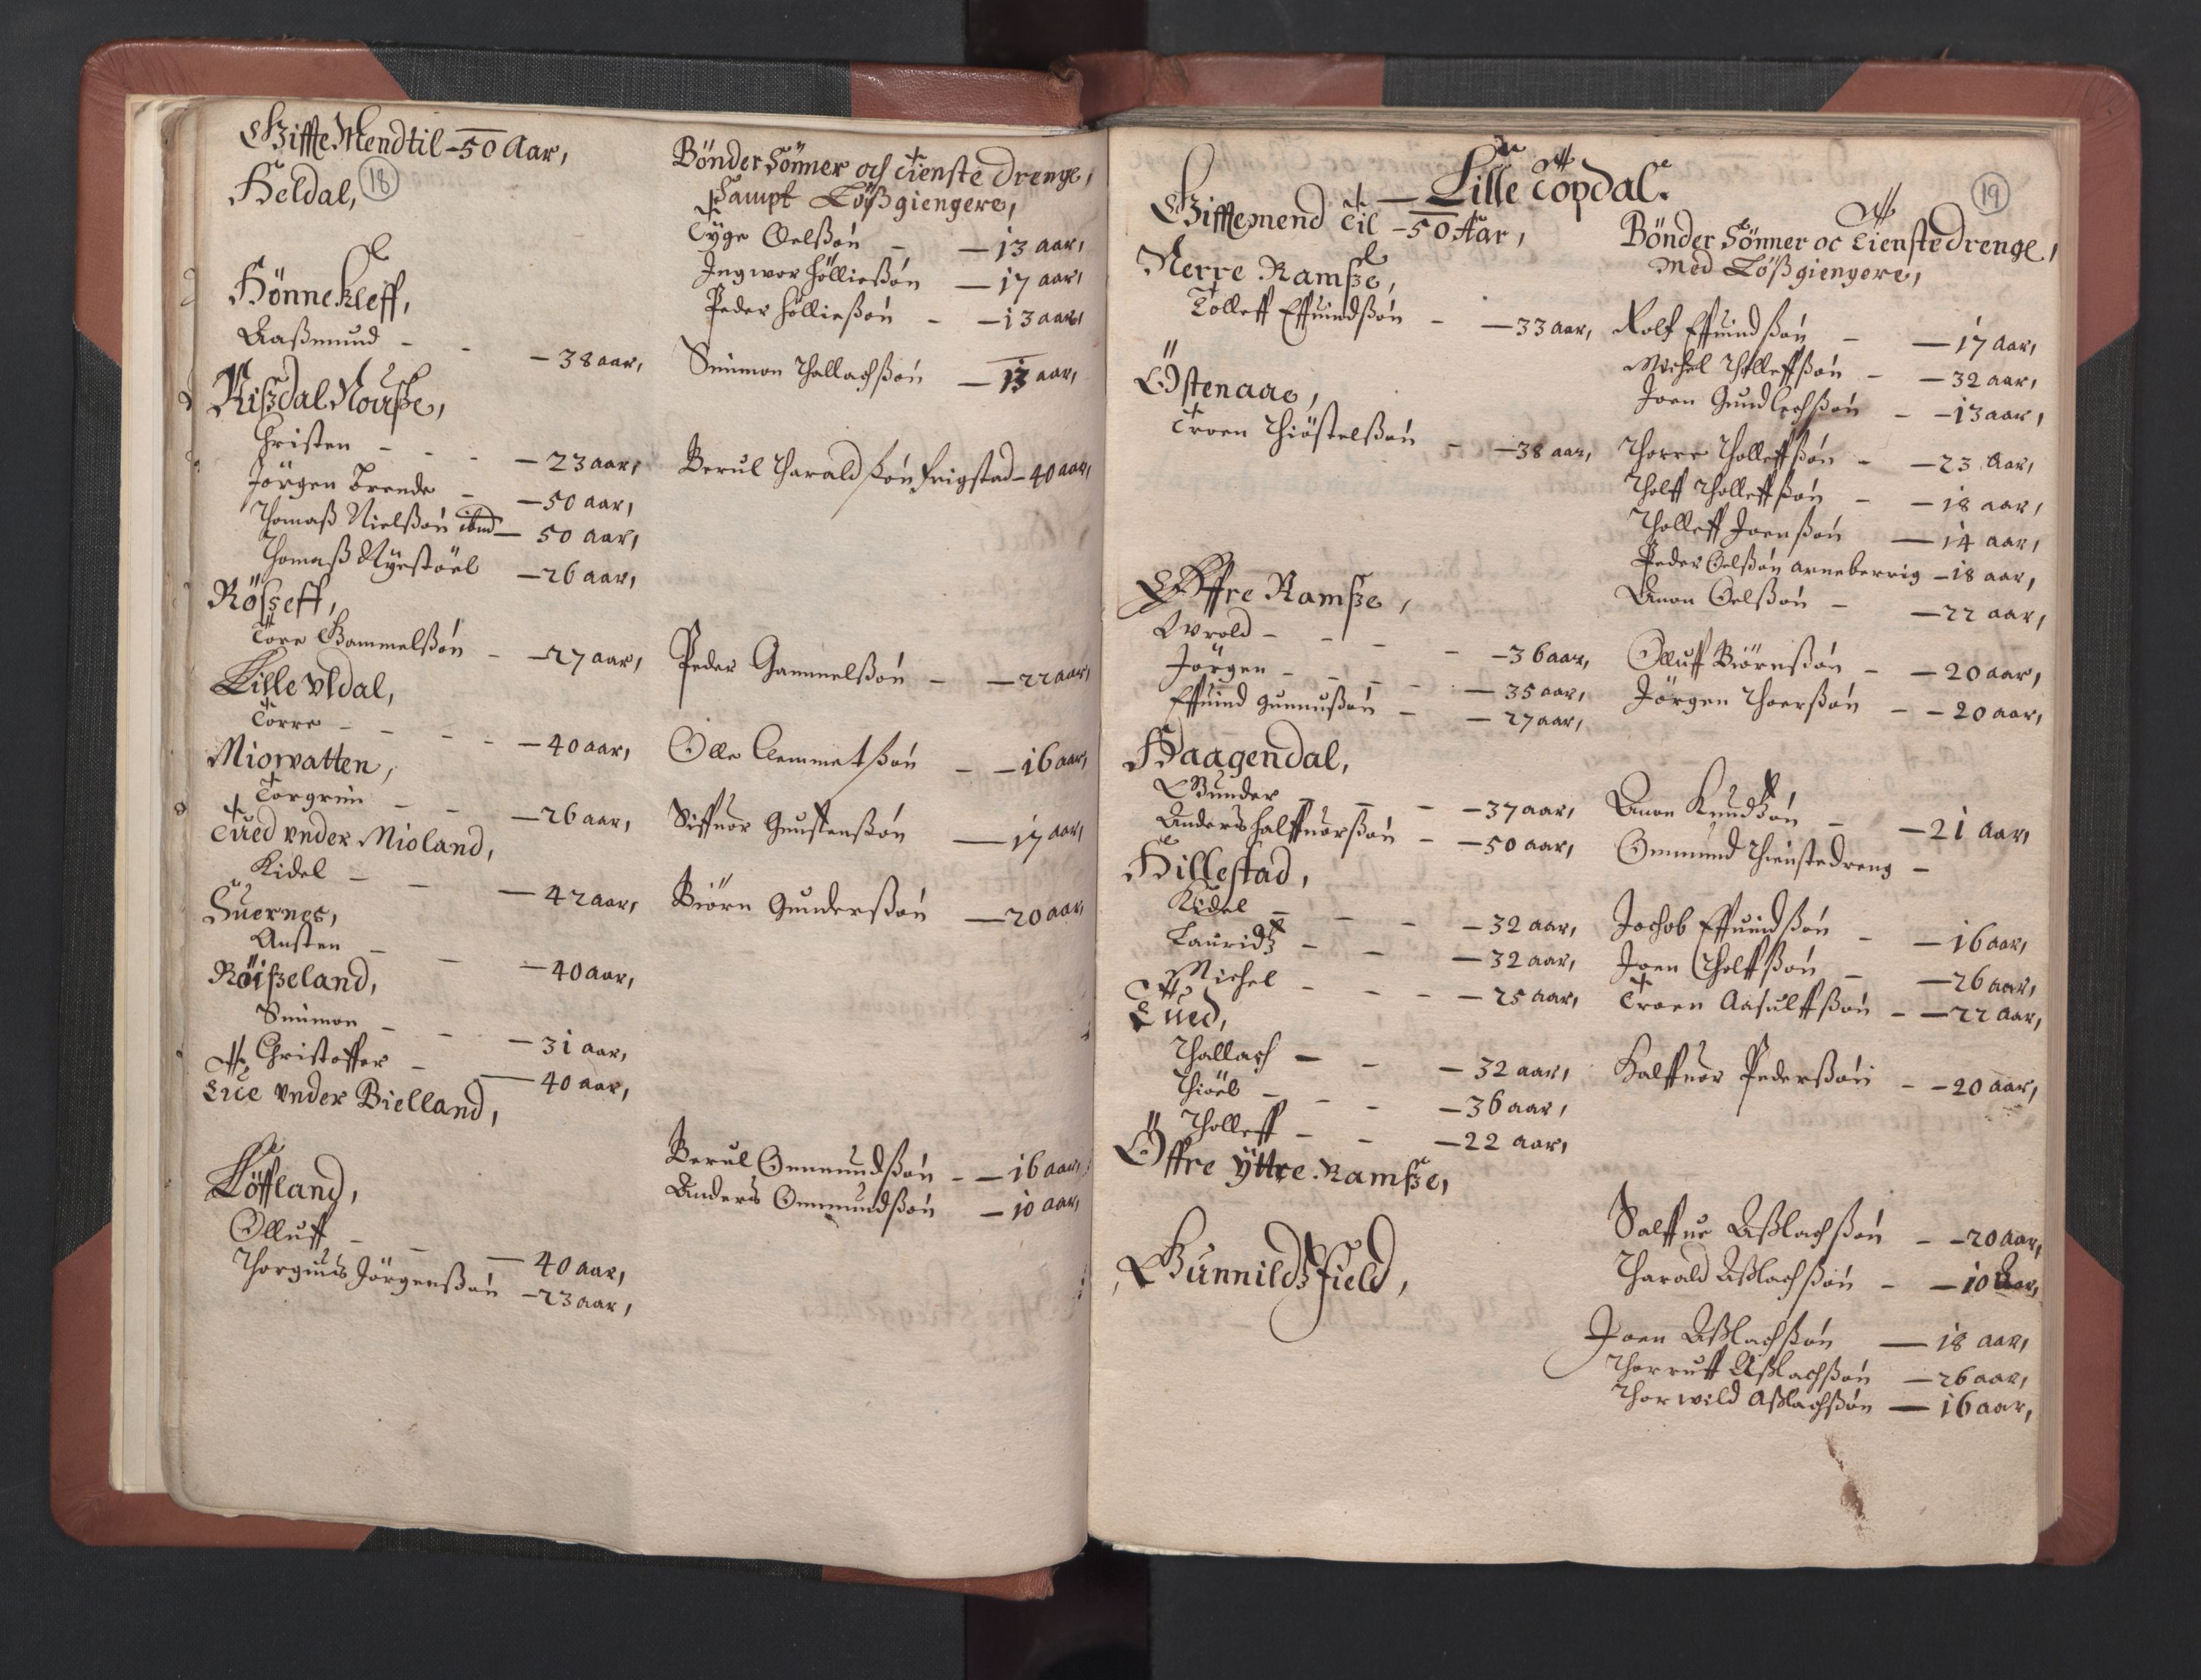 Giffte Mend til - 50 Aar,
Heldal, 18
Hönnekleff,
Aaßmund - - - 38 aar,
Rißdal Nourße,
Christen - - - 23 aar,
Jörgen Trende - - 50 aar,
Thomaß Nielßøn ibid - 50 aar,
Thomaß Nyestöel - 26 aar,
Rösseff,
Tore Gammelßøn - - 27 aar,
Lille Vldal,
Torre - - - - 40 aar,
Miowatten,
Torgrim - - - 26 aar,
Tued vnder Mioland,
Kidel - - - 42 aar,
Suernes,
Austen - - - 40 aar,
Röißeland,
Simmon - - - 31 aar,
Christoffer - - 40 aar,
Lice vnder Bielland,
Löffland,
Olluff - - - 40 aar,
Thorgiuls Jörgenßøn - 23 aar,
Bönder Sönner och tienste drenge,
Sampt Lößgiengere,
Tyge Oelßøn - - 13 aar,
Ingwor Hölließøn - 17 aar,
Peder Hölließøn - - 13 aar,
Simmon Thallachßøn - 13 aar,
Berul Tharaldßøn Frigstad - 40 aar,
Peder Gammelßøn - - 22 aar,
Olle Clemmetßøn - - 16 aar,
Siffuor Gunstenßøn - 17 aar,
Biörn Gunderßøn - 20 aar,
Berul Ommundßøn - - 16 aar,
Anders Ommundßøn - 10 aar,
Lille Topdal.
19
Gifftemend til - 50 Aar,
Nerre Ramße,
Tolleff Effuindßøn - - 33 aar,
Östenaae,
Troen Thiöstelßøn - - 38 aar,
Öffre Ramße,
Wrold - - - - 36 aar,
Jörgen - - - - 35 aar,
Effuind Gunnußøn - - 27 aar,
Haagendal,
Gunder - - - 37 aar,
Anders Halffuorßøn - - 50 aar,
Hillestad,
Kidel - - - - 32 aar,
Lauridz - - - 32 aar,
Michel - - - - 25 aar,
Lued,
Thallach - - - 32 aar,
Thiöel - - - 36 aar,
Tholleff - - - 22 aar,
Öffre Yttre Ramße,
Gunnildzfield,
Bönder Sönner oc tienstedrenge,
Med Lößgiengere,
Rolf Effuindßøn - - 17 aar,
Michel Tholleffßøn - - 32 aar,
Joen Gundlechßøn - - 13 aar,
Thorre Tholleffßøn - - 23 Aar,
Tholff Tholleffßøn - - 18 aar,
Tholleff Joenßøn - 14 aar,
Peder Oelßøn Arneberrig - 18 aar,
Anon Oelßøn - - 22 aar,
Olluff Biörnßøn - - 20 aar,
Jörgen Thoerßøn - - 20 aar,
Anon Knudzøn, - - 21 Aar,
Ommund Thienstedreng -
Jochob Effuindßøn - - 16 aar,
Joen Tholffßøn - - 26 aar,
Troen Aasulffßøn - - 22 aar,
Halffuor Pederßøn - - 20 aar,
Salffue Aßlachßøn - - 20 aar,
Tharald Aßlachßøn - - 10 Aar,
Joen Aßlachßøn - 18 aar,
Thorruff Aßlachßøn - 26 aar,
Thorwild Aßlachßøn - 16 aar,